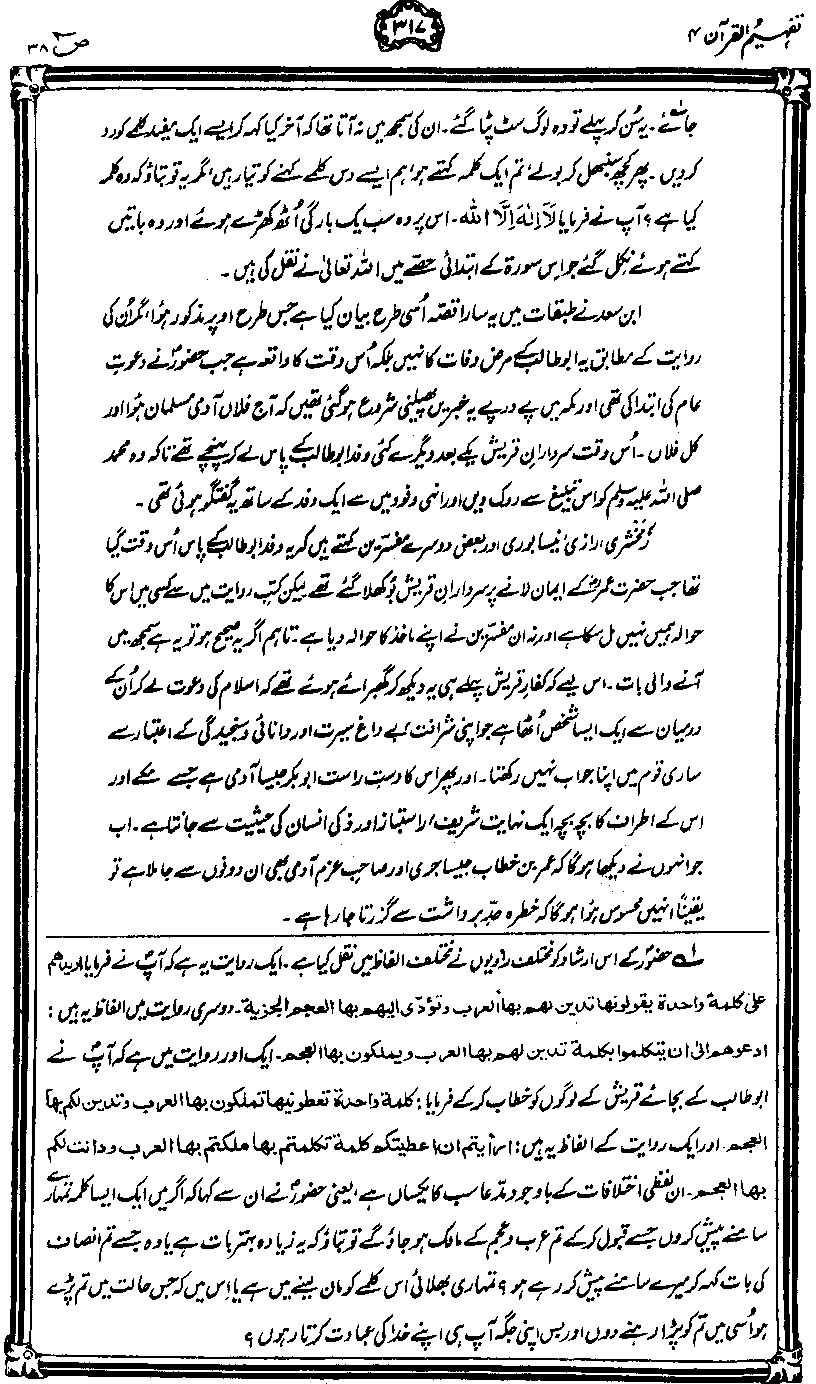 تفہیم القرآن ۴
۳۱۷
صٓ ۳۸
جائے۔ یہ سُن کر پہلے تو وہ لوگ سٹ پٹا گئے۔ ان کی سمجھ میں نہ آتا تھا کہ آخر کیا کہہ کر ایسے ایک مفید کلمے کو رد
کر دیں۔ پھر کچھ سنبھل کر بولے، تم ایک کلمہ کہتے ہو، ہم ایسے دس کلمے کہنے کو تیار ہیں، مگر یہ تو بتاؤ کہ وہ کلمہ
کیا ہے؟ آپ نے فرمایا لَآ اِلٰهَ اِلَّا اللہ۔ اس پر وہ سب یک بارگی اُٹھ کھڑے ہوئے اور وہ باتیں
کہتے ہوئے نکل گئے جو اس سورۃ کے ابتدائی حصے میں اللہ تعالیٰ نے نقل کی ہیں۔
ابن سعد نے طبقات میں یہ سارا قصّہ اُسی طرح بیان کیا ہے جس طرح اوپر مذکور ہُوا، مگر اُن کی
روایت کے مطابق یہ ابو طالب کے مرض وفات کا نہیں بلکہ اُس وقت کا واقعہ ہے جب حضورؐ نے دعوتِ
عام کی ابتدا کی تھی اور مکہ میں پے در پے یہ خبریں پھیلنی شروع ہو گئی تھیں کہ آج فلاں آدمی مسلمان ہُوا اور
کل فلاں۔ اُس وقت سردارانِ قریش یکے بعد دیگرے کئی وفد ابو طالب کے پاس لے کر پہنچے تھے تاکہ وہ محمد
صلی اللہ علیہ وسلم کو اس تبلیغ سے روک دیں اور انہی وفود میں سے ایک وفد کے ساتھ یہ گفتگو ہوئی تھی۔
زَمَخْشَری، رازی، نیسابوری اور بعض دوسرے مفسّرین کہتے ہیں کہ یہ وفد ابو طالب کے پاس اُس وقت گیا
تھا جب حضرت عمرؓ کے ایمان لانے پر سردارانِ قریش بَوکھلا گئے تھے، لیکن کتبِ روایت میں سے کسی میں اس کا
حوالہ ہمیں نہیں مل سکا ہے اور نہ ان مفسّرین نے اپنے ماخذ کا حوالہ دیا ہے۔ تاہم اگر یہ صحیح ہو تو یہ ہے سمجھ میں
آنے والی بات۔ اس لیے کہ کفارِ قریش پہلے ہی یہ دیکھ کر گھبرائے ہوئے تھے کہ اسلام کی دعوت لے کر اُن کے
درمیان سے ایک ایسا شخص اُٹھا ہے جو اپنی شرافت، بے داغ سیرت اور دانائی و سنجیدگی کے اعتبار سے
ساری قوم میں اپنا جواب نہیں رکھتا۔ اور پھر اس کا دستِ راست ابو بکر جیسا آدمی ہے جسے مکے اور
اس کے اطراف کا بچہ بچہ ایک نہایت شریف، راستباز اور ذکی انسان کی حیثیت سے جانتا ہے۔ اب
جو انہوں نے دیکھا ہوگا کہ عمر بن خطاب جیسا جری اور صاحبِ عزم آدمی بھی ان دونوں سے جا ملا ہے تو
یقیناً انہیں محسوس ہُوا ہوگا کہ خطرہ حدِ برداشت سے گزرتا جا رہا ہے۔
لے حضورؐ کے اس ارشاد کو مختلف راویوں نے مختلف الفاظ میں نقل کیا ہے۔ ایک روایت یہ ہے کہ آپؐ نے فرمایا اریدھم
علی کلمة واحدة یقولونھا تدین لھم بھا العرب وتؤدّی الیھم بھا العجم الجزیة۔ دوسری روایت میں الفاظ یہ ہیں:
ادعوھم الیٰ ان یتکلموا بکلمة تدین لھم بھا العرب ویملکون بھا العجم۔ ایک اور روایت میں ہے کہ آپؐ نے
ابو طالب کے بجائے قریش کے لوگوں کو خطاب کر کے فرمایا: کلمة واحدة تعطونیھا تملکون بھا العرب وتدین لکم بھا
العجم۔ اور ایک روایت کے الفاظ یہ ہیں: أرأیتم ان اعطیتکم کلمة تکلمتم بھا ملکتم بھا العرب ودانت لکم
بھا العجم۔ ان لفظی اختلافات کے باوجود مدّعا سب کا یکساں ہے، یعنی حضورؐ نے ان سے کہا کہ اگر میں ایک ایسا کلمہ تمہارے
سامنے پیش کروں جسے قبول کر کے تم عرب و عجم کے مالک ہو جاؤ گے تو بتاؤ کہ یہ زیادہ بہتر بات ہے یا وہ جسے تم انصاف
کی بات کہہ کر میرے سامنے پیش کر رہے ہو؟ تمہاری بھلائی اس کلمے کو مان لینے میں ہے یا اِس میں کہ جس حالت میں تم پڑے
ہو اُسی میں تم کو پڑا رہنے دوں اور بس اپنی جگہ آپ ہی اپنے خدا کی عبادت کرتا رہوں؟